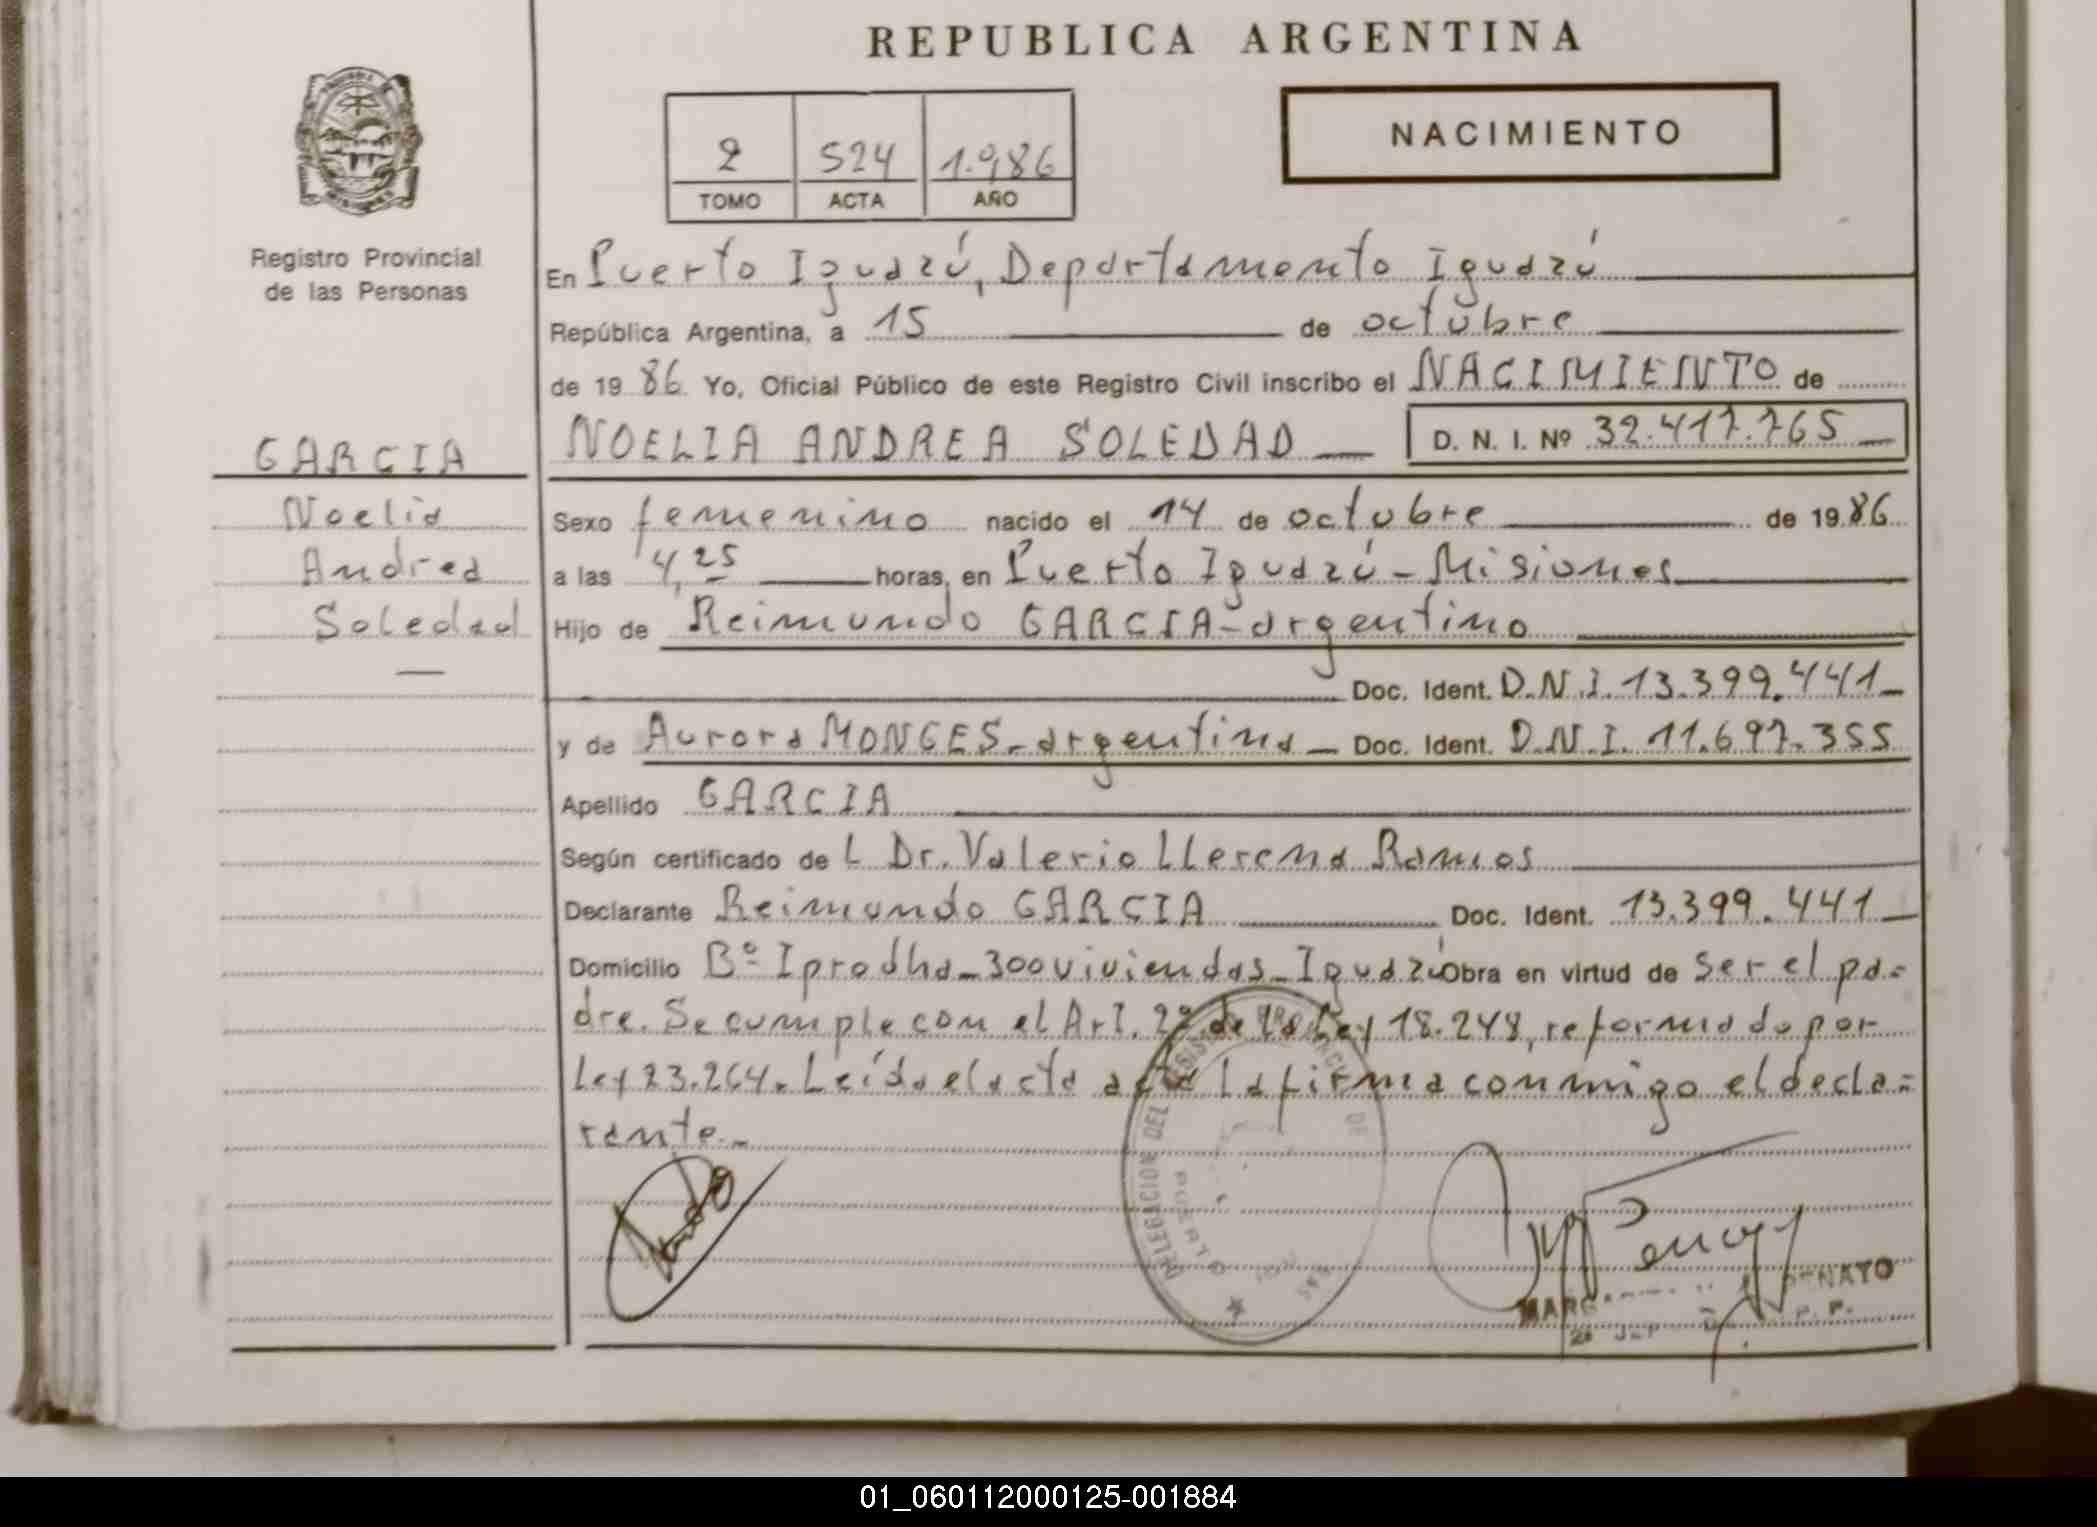 REPUBLICA ARGENTINA
NACIMIENTO
2 524 1.986
TOMO ACTA AÑO
Registro Provincial
de las Personas
En Puerto Iguazú, Departamento Iguazú
República Argentina, a 15 de octubre
de 19 86 Yo, Oficial Público de este Registro Civil inscribo el NACIMIENTO de
NOELIA ANDREA SOLEDAD D. N. I. Nº 32.417.765
GARCIA
Noelia
Andrea
Soledad
Sexo femenino nacido el 14 de octubre de 19 86
a las 4,25 horas, en Puerto Iguazú - Misiones
Hijo de Reimundo GARCIA - argentino
Doc. Ident. D.N.I. 13.399.441
y de Aurora MONGES - argentina Doc. Ident. D.N.I. 11.697.355
Apellido GARCIA
Según certificado de L Dr. Valerio LLerena Ramos
Declarante Reimundo GARCIA Doc. Ident. 13.399.441
Domicilio Bº Iprodha - 300 viviendas - Iguazú Obra en virtud de Ser el pa=
dre. Se cumple con el Art. 2º de la Ley 18.248, reformado por
Ley 23.264. Leída el acta la firma conmigo el decla=
rante.
DELEGACION DEL REGISTRO PROVINCIAL DE
01_060112000125-001884